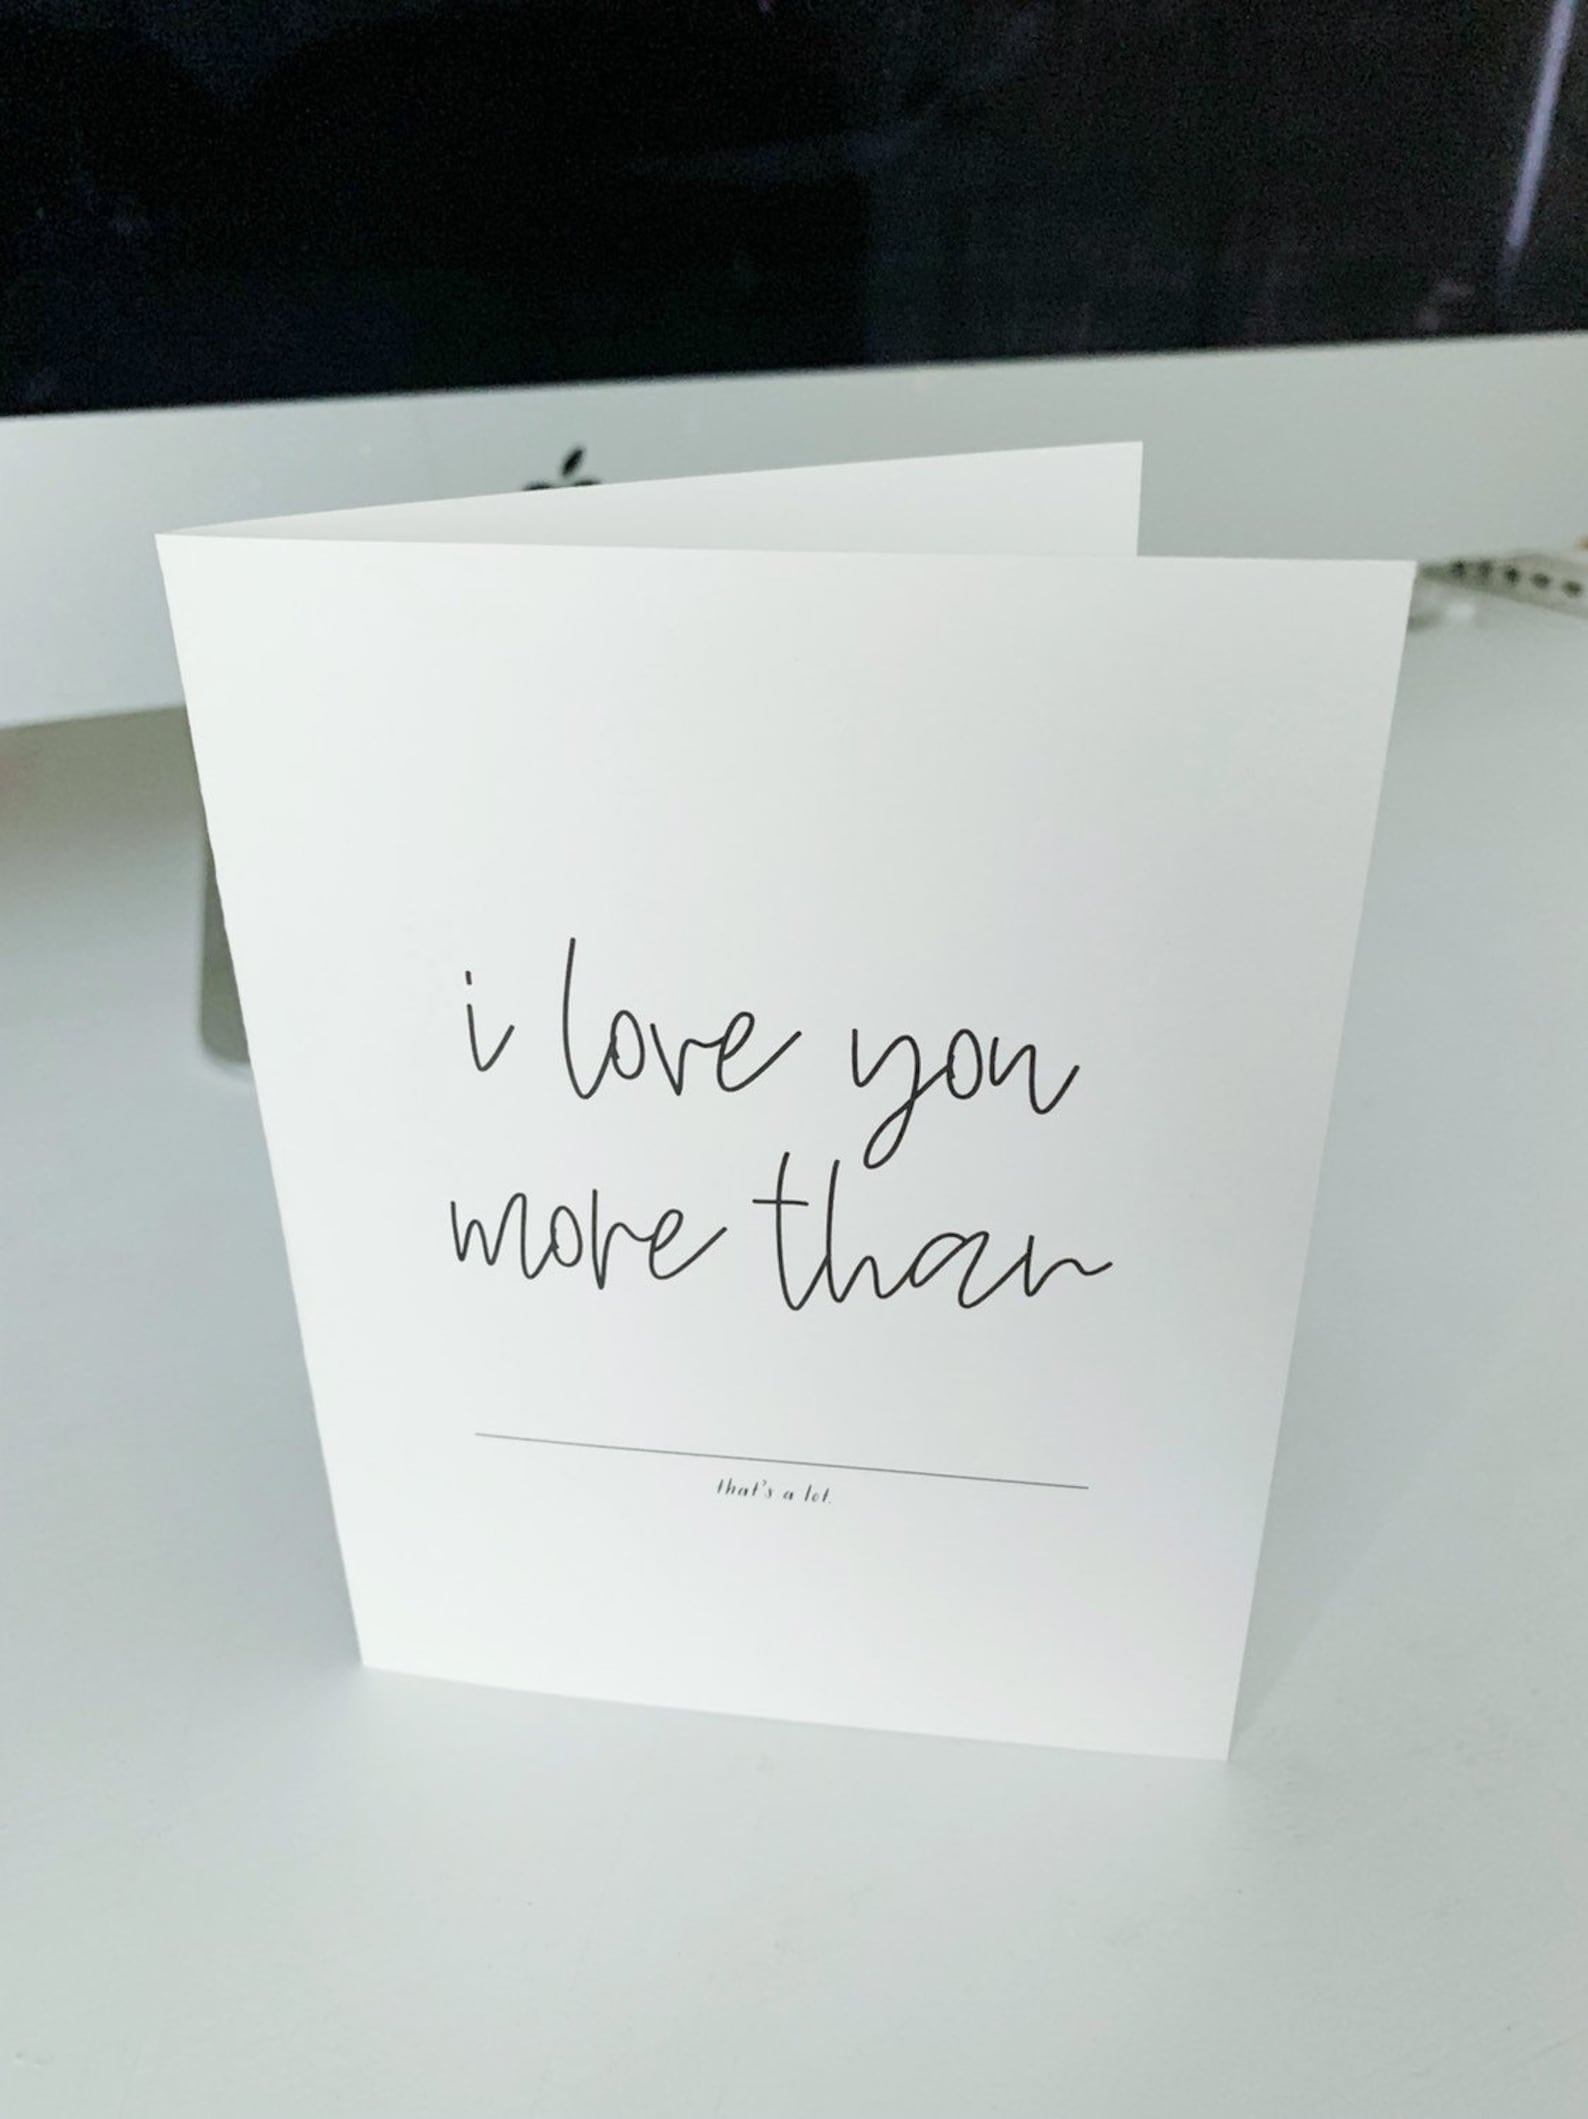 i love you
more than
that's a lot.